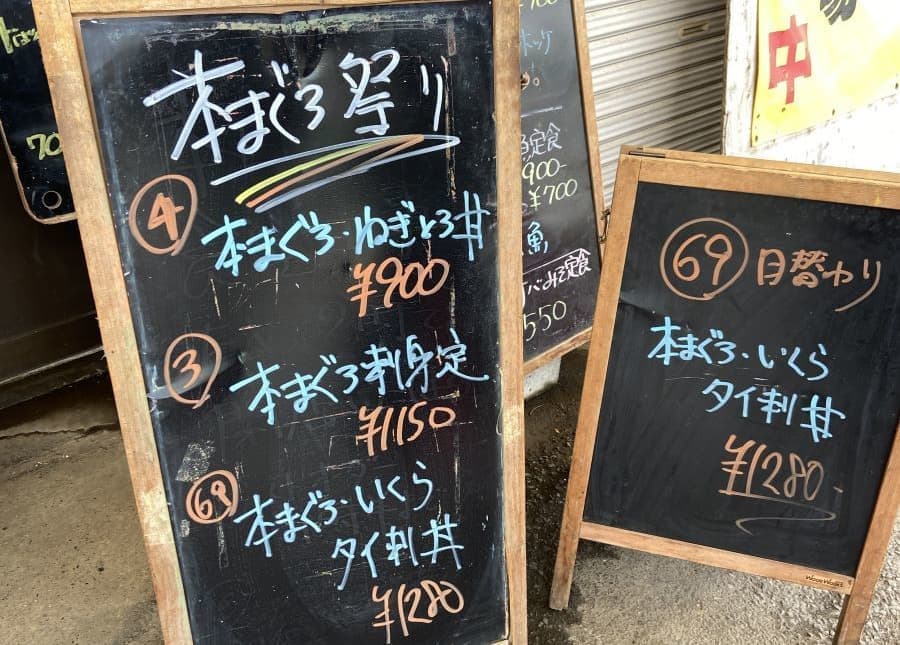 本まぐろ祭り
④
本まぐろ・ねぎとろ丼
¥900
③
本まぐろ刺身定
¥1150
69
本まぐろ・いくら
タイ刺丼
¥1280
70
ホッケ
定食
900-
¥700
魚
バみそ定食
550
69 日替わり
本まぐろ・いくら
タイ刺丼
¥1280-
中